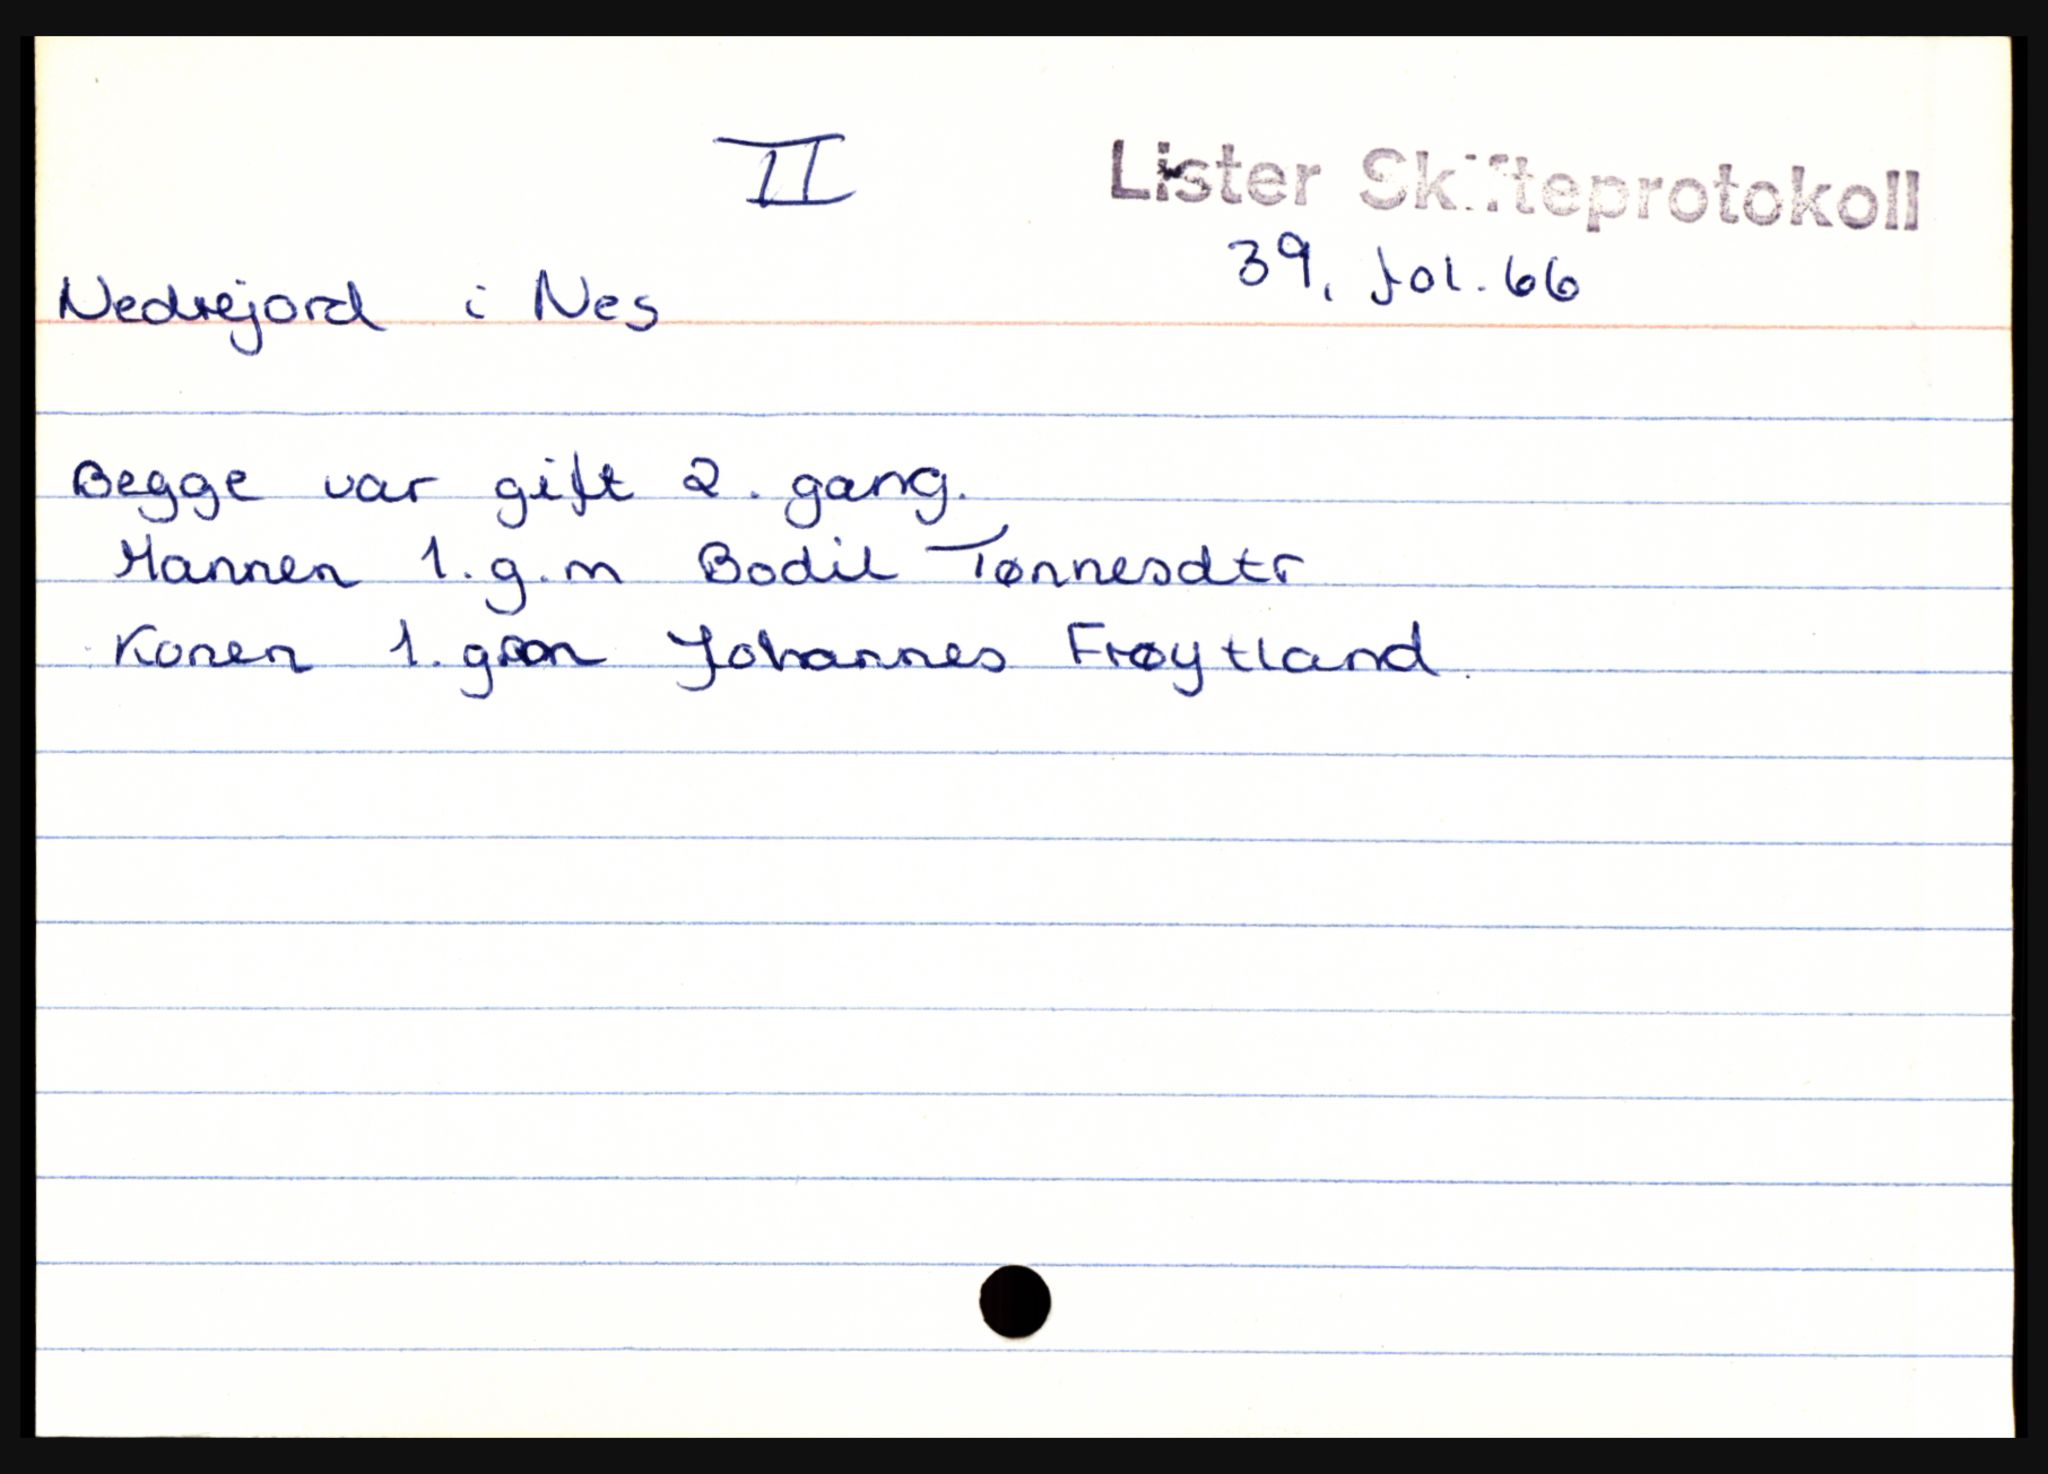 II
Lister Skifteprotokoll
39, fol. 66
Nedrejord i Nes
Begge var gift 2. gang.
Mannen 1. g. m Bodil Tønnesdtr
Konen 1. g m Johannes Frøytland.